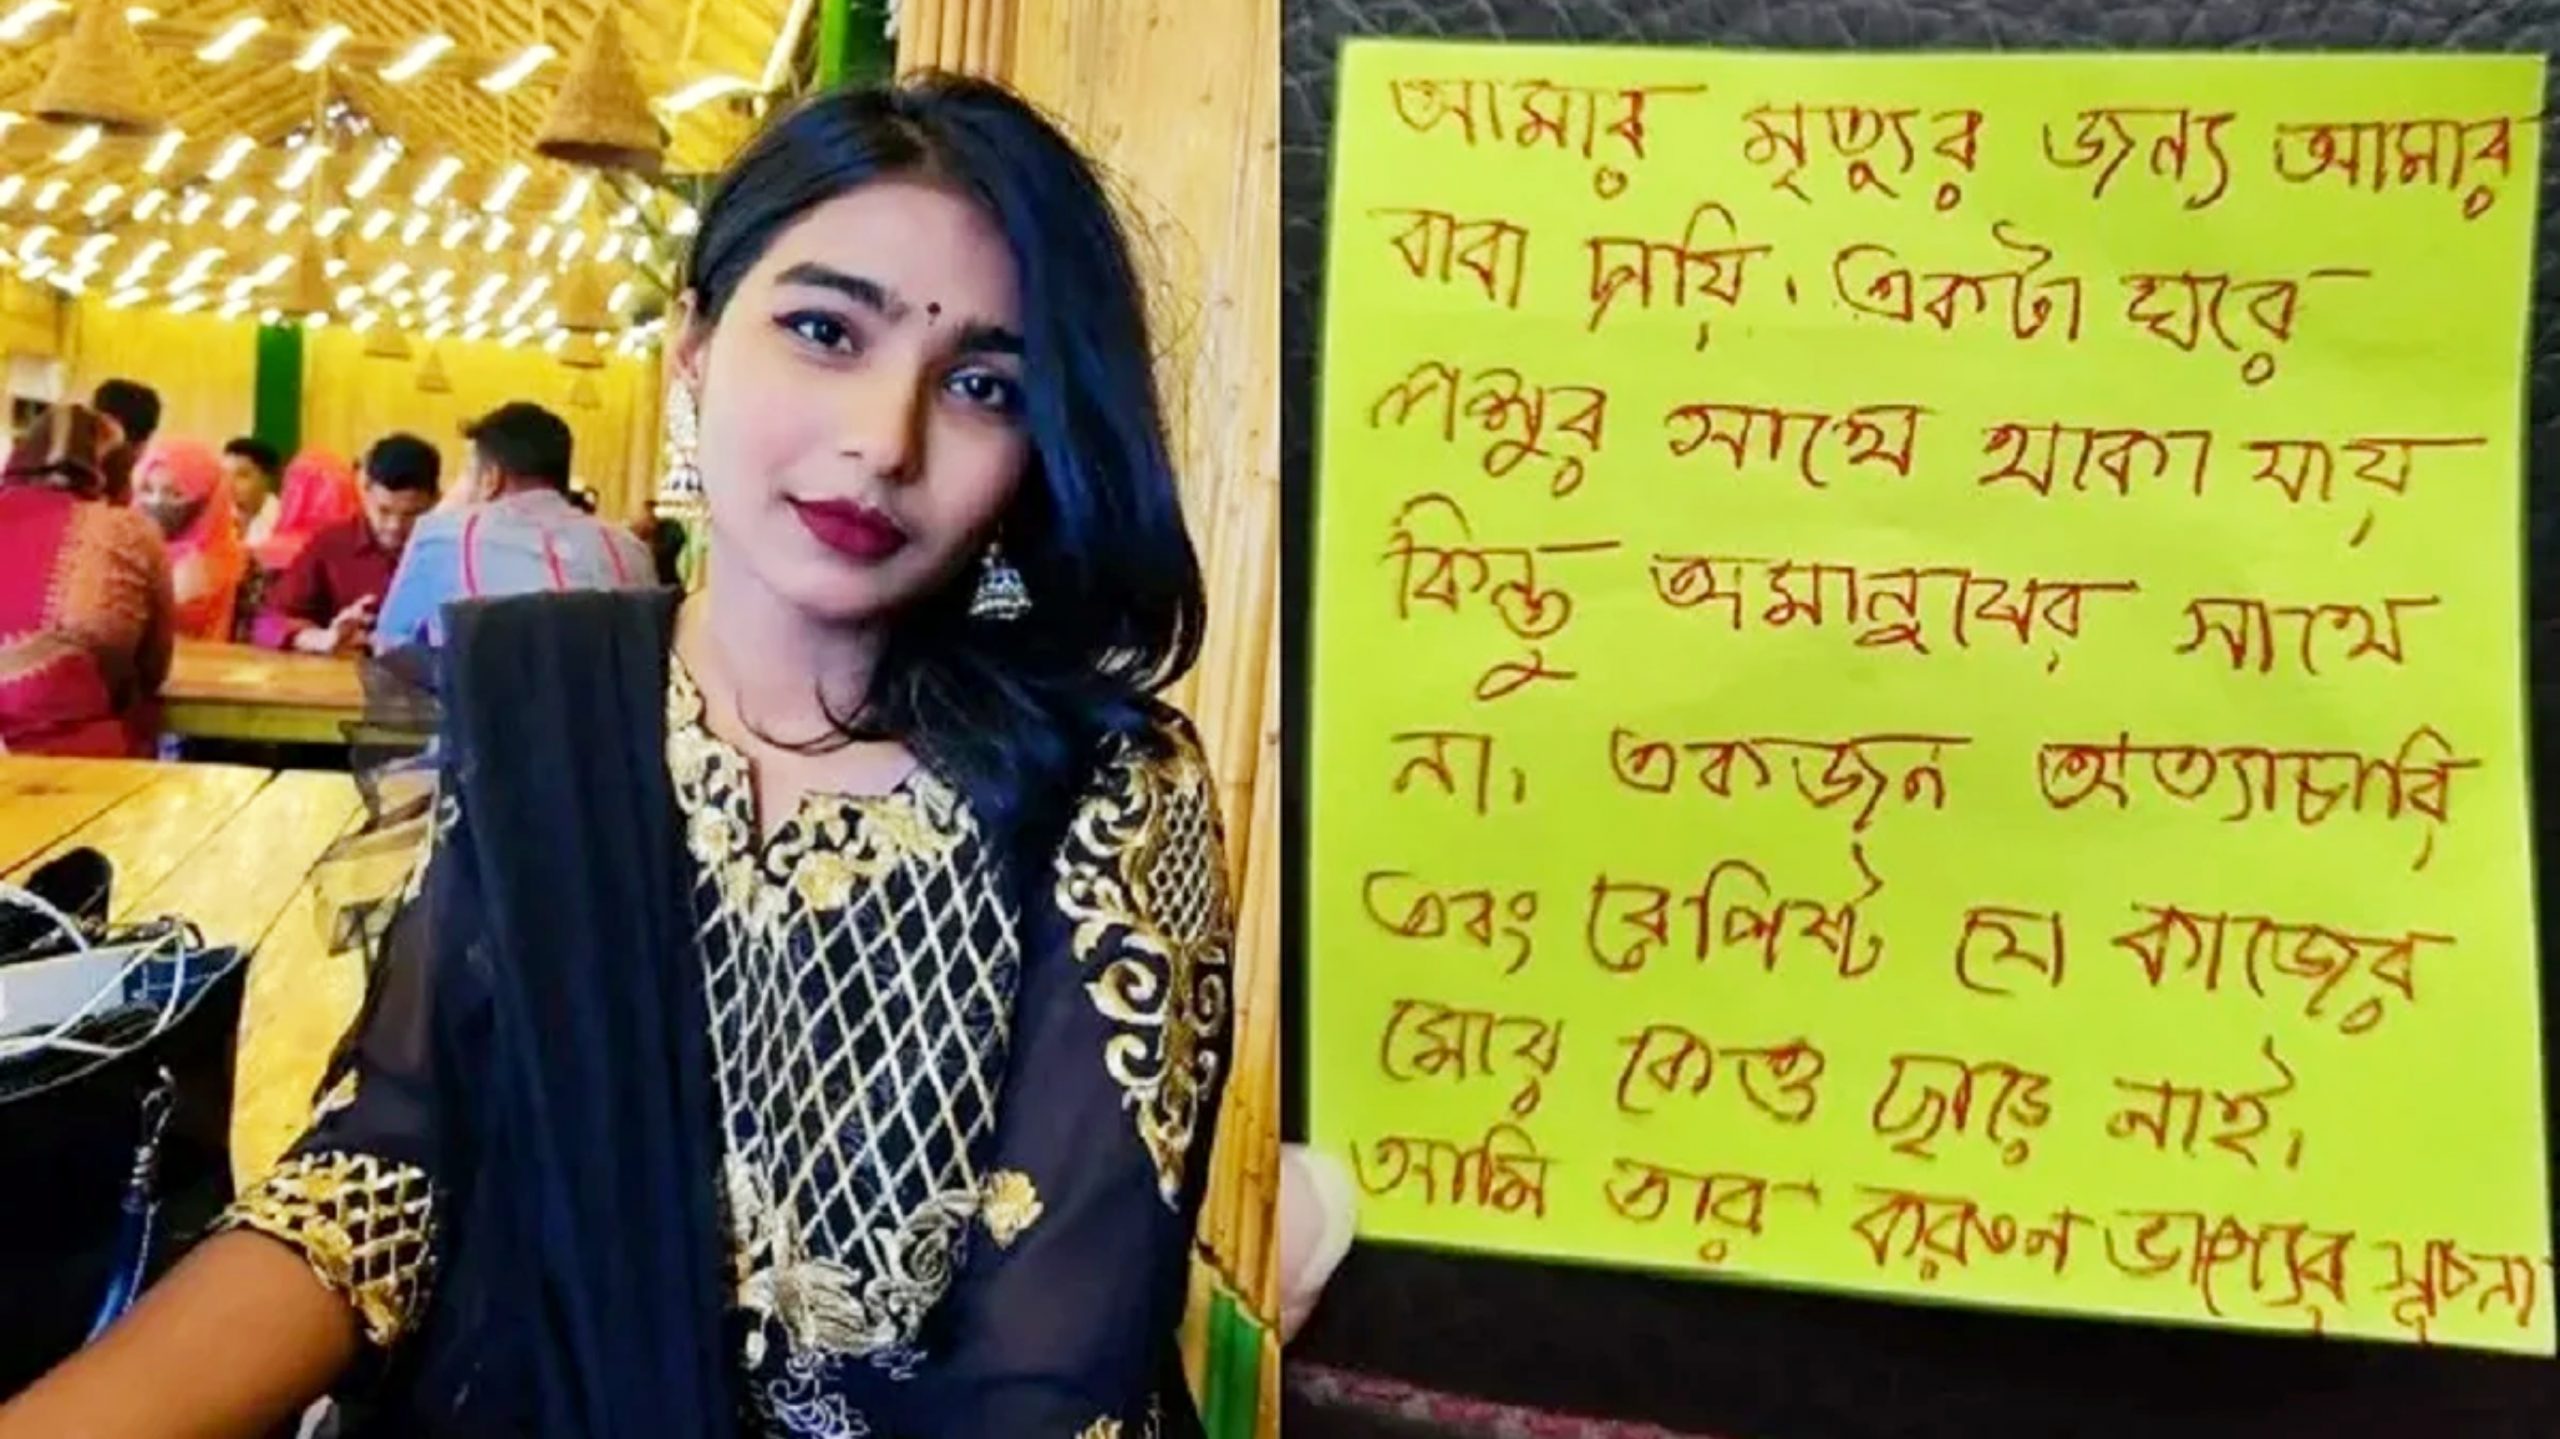 আমার মৃত্যুর জন্য আমার
বাবা দায়ি। একটা ঘরে
পশুর সাথে থাকা যায়
কিন্তু অমানুষের সাথে
না। একজন অত্যাচারি
এবং রেপিষ্ট যে কাজের
মেয়ে কেও ছাড়ে নাই।
আমি তার করুন ভাগ্যের সূচনা